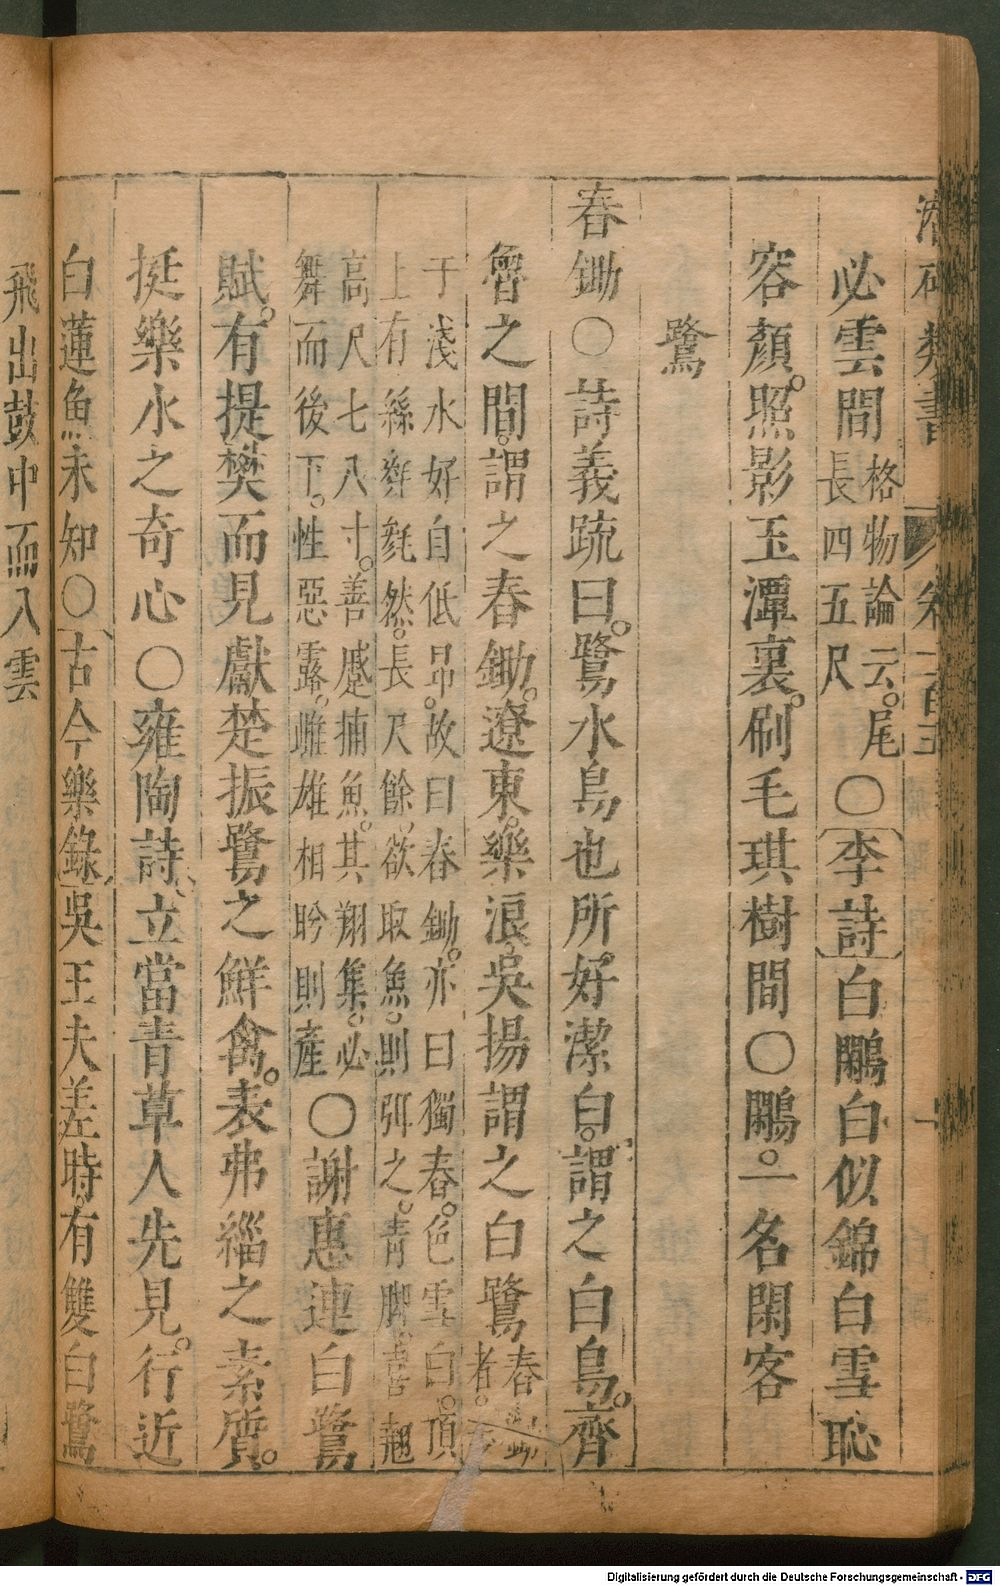 潛確類書 卷一百五
必雲間格物論云。尾長四五尺〇李詩白鷴白似錦白雪恥
容顏。照影玉潭裏。刷毛琪樹間〇鷴。一名閑客
鷺
舂鋤〇詩義䟽曰。鷺水鳥也所好潔白。謂之白鳥。齊
魯之間。謂之舂鋤。遼東。樂浪。吳揚謂之白鷺舂鋤者。
于淺水好自低昂。故曰舂鋤。亦曰獨舂。色雪白。頂
上有絲毿毿然。長尺餘。欲取魚。則弭之。青脚。喜翹
高尺七八寸。善蹙捕魚。其翔集。必
舞而後下。性惡露。雌雄相盻則產〇謝惠連白鷺
賦。有提樊而見獻楚振鷺之鮮禽。表弗緇之素質。
挺樂水之奇心〇雍陶詩。立當青草人先見。行近
白蓮魚未知〇古今樂錄吳王夫差時。有雙白鷺
飛出鼓中而入雲
Digitalisierung gefördert durch die Deutsche Forschungsgemeinschaft - DFG